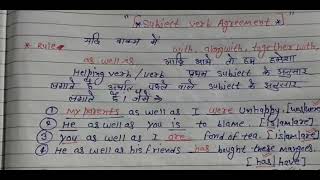 "[*Subject verb Agreement.*]"
* Rule
यदि वाक्य में with, alongwith, together with,
as well as आदि आये तो हम हमेशा
Helping verb/verb प्रथम Subject के अनुसार
लगाते हैं अर्थात पहले वाले Subject के अनुसार
लगाते हैं। जैसे →
① My parents as well as I were unhappy. [was/were]
② He as well as you is to blame. [is/am/are]
③ You as well as I are fond of tea. [is/am/are]
④ He as well as his friends has bought these mangoes.
[has/have]